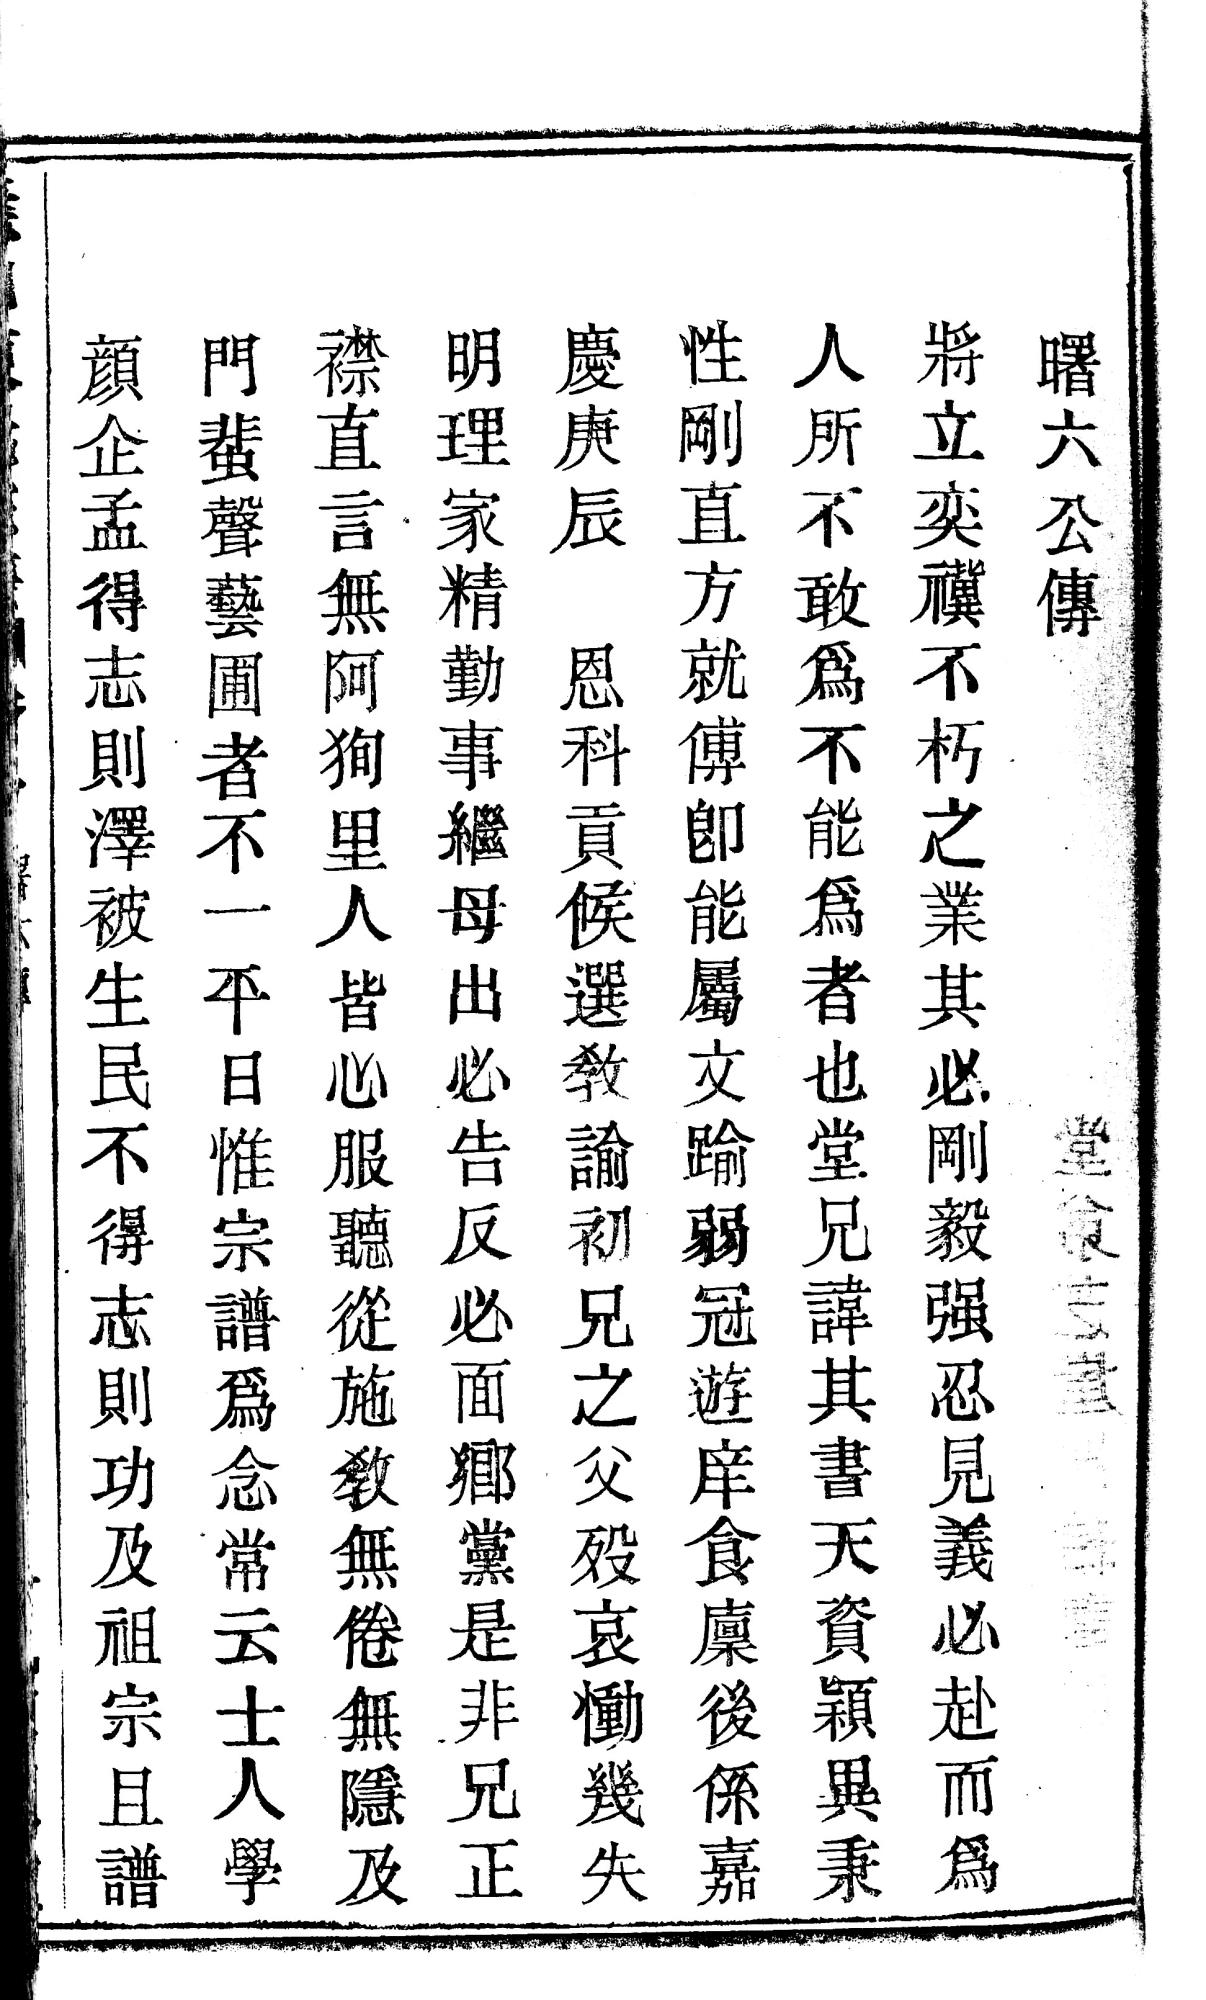 曙六公傳 堂
將立奕禩不朽之業其必剛毅强忍見義必赴而爲
人所不敢爲不能爲者也堂兄諱其書天資穎異秉
性剛直方就傅卽能屬文踰弱冠遊庠食廩後係嘉
慶庚辰 恩科貢候選教諭初兄之父歿哀慟幾失
明理家精勤事繼母出必告反必面鄉黨是非兄正
襟直言無阿狥里人皆心服聽從施教無倦無隱及
門蜚聲藝圃者不一平日惟宗譜爲念常云士人學
顏企孟得志則澤被生民不得志則功及祖宗且譜